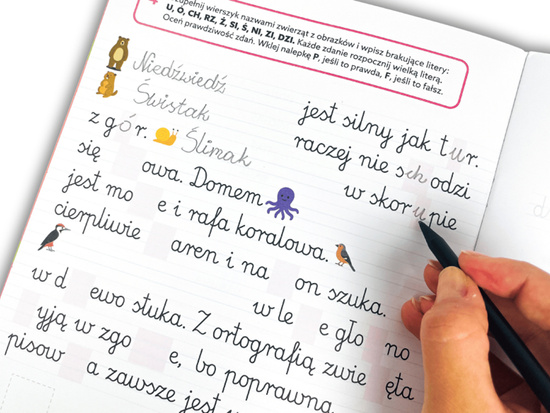 upełnij wierszyk nazwami zwierząt z obrazków i wpisz brakujące litery:
U, Ó, CH, RZ, Ż, SI, Ś, NI, ZI, DZI. Każde zdanie rozpocznij wielką literą.
Oceń prawdziwość zdań. Wklej nalepkę P, jeśli to prawda, F, jeśli to fałsz.
Niedźwiedź jest silny jak tur.
Świstak raczej nie schodzi
z gór. Ślimak w skorupie
się owa. Domem
jest mo e i rafa koralowa.
cierpliwie aren i na on szuka.
w le e gło no
w d ewo stuka. Z ortografią zwie ęta
yją w zgo e, bo poprawna
pisow a zawsze jest